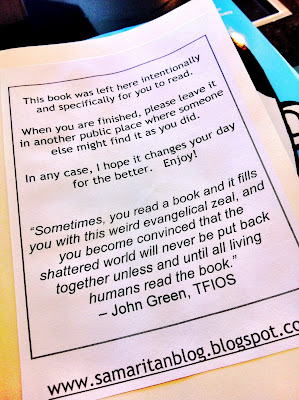 This book was left here intentionally
and specifically for you to read.
When you are finished, please leave it
in another public place where someone
else might find it as you did.
In any case, I hope it changes your day
for the better. Enjoy!
“Sometimes, you read a book and it fills
you with this weird evangelical zeal, and
you become convinced that the
shattered world will never be put back
together unless and until all living
humans read the book.”
– John Green, TFIOS
www.samaritanblog.blogspot.co